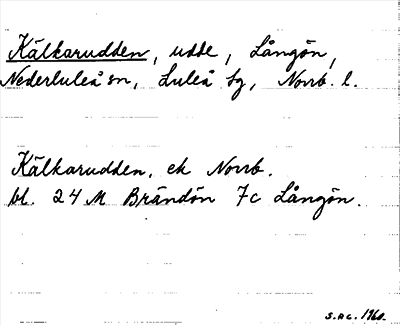 Kälkarudden, udde, Långön,
Nederluleå sn, Luleå tg, Norrb. l.
Kälkarudden, ek Norrb.
bl. 24 M Brändön 7c Långön.
S.Ac. 1960.